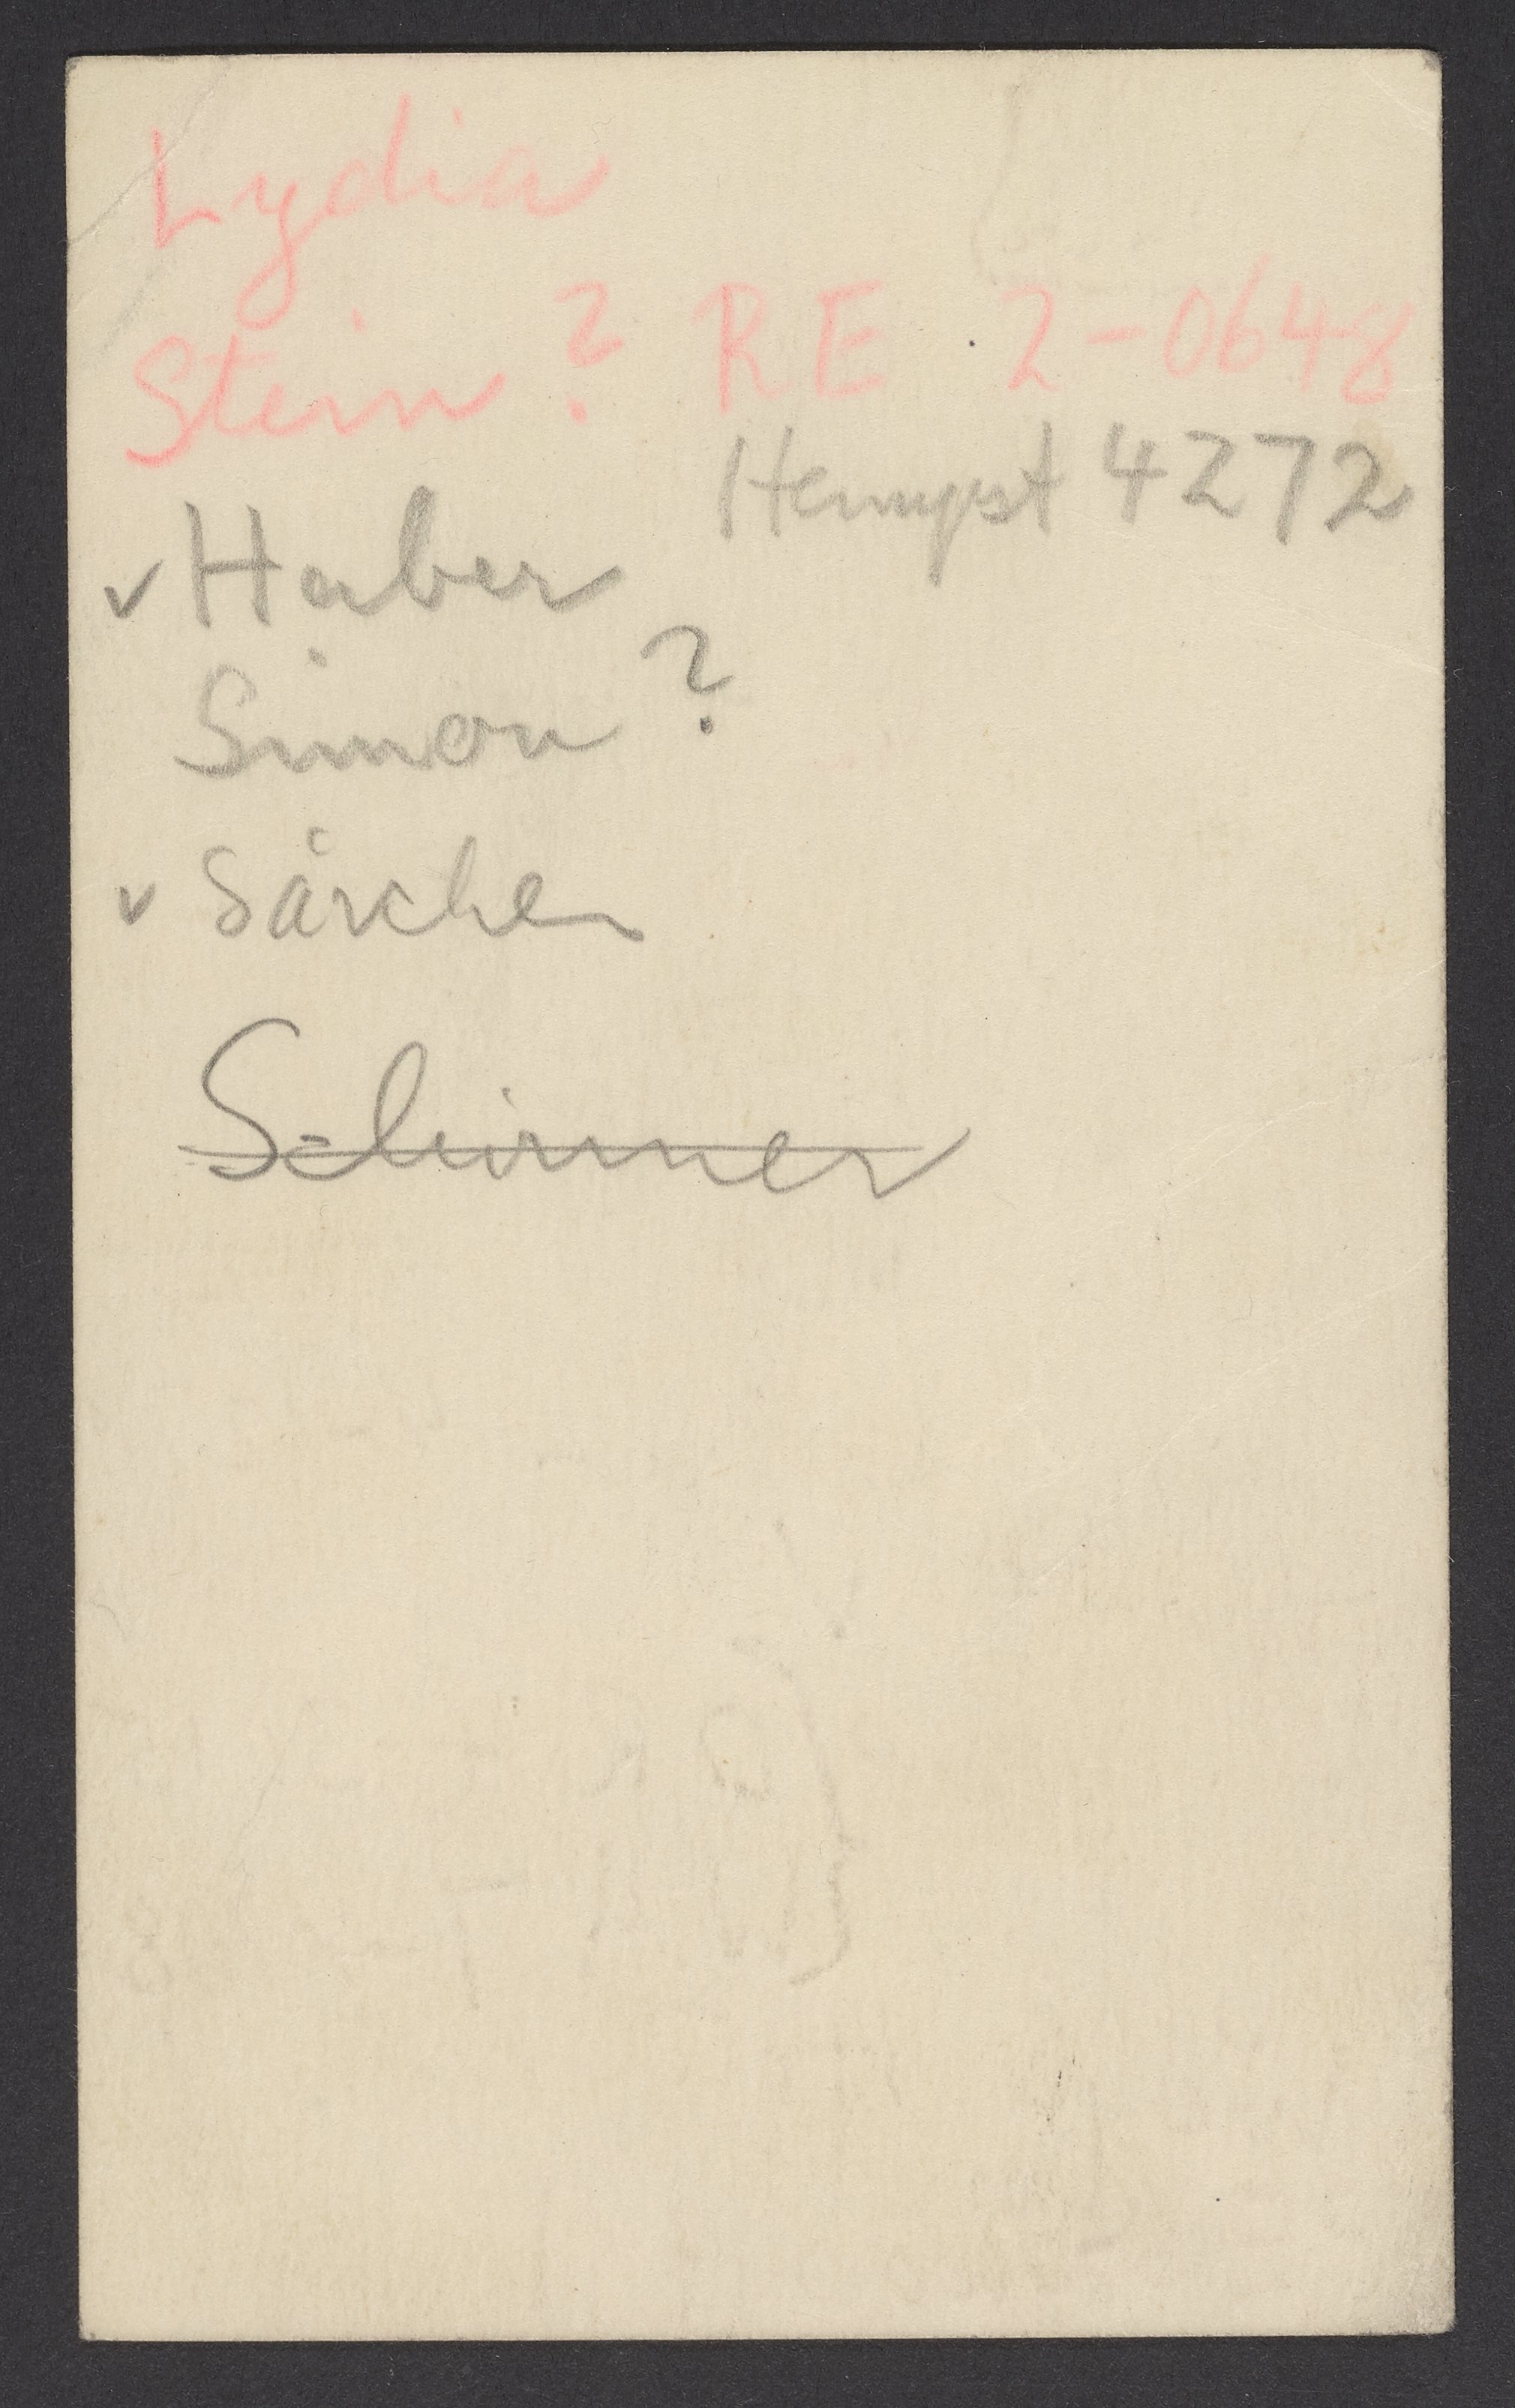 Lydia
Stein ? RE 2-0648
Hempst 4272
✓ Haber
Simon ?
✓ Särchen
Schirmer